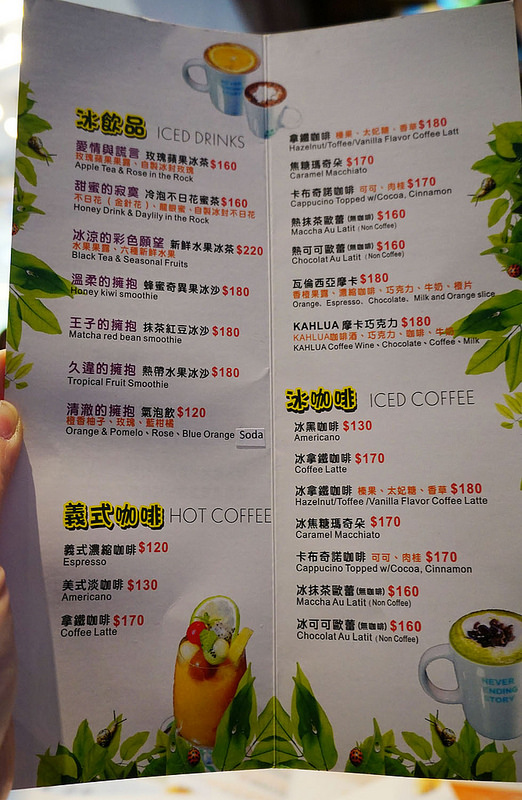 冰飲品 ICED DRINKS
愛情與謊言 玫瑰蘋果冰茶 $160
玫瑰蘋果果露、自製冰封玫瑰
Apple Tea & Rose in the Rock
甜蜜的寂寞 冷泡不日花蜜茶 $160
不日花（金針花）、龍眼蜜、自製冰封不日花
Honey Drink & Daylily in the Rock
冰涼的彩色願望 新鮮水果冰茶 $220
水果果露、六種新鮮水果
Black Tea & Seasonal Fruits
溫柔的擁抱 蜂蜜奇異果冰沙 $180
Honey kiwi smoothie
王子的擁抱 抹茶紅豆冰沙 $180
Matcha red bean smoothie
久違的擁抱 熱帶水果冰沙 $180
Tropical Fruit Smoothie
清澈的擁抱 氣泡飲 $120
橙香柚子、玫瑰、藍柑橘
Orange & Pomelo、Rose、Blue Orange Soda
義式咖啡 HOT COFFEE
義式濃縮咖啡 $120
Espresso
美式淡咖啡 $130
Americano
拿鐵咖啡 $170
Coffee Latte
拿鐵咖啡 榛果、太妃糖、香草 $180
Hazelnut/Toffee/Vanilla Flavor Coffee Latt
焦糖瑪奇朵 $170
Caramel Macchiato
卡布奇諾咖啡 可可、肉桂 $170
Cappucino Topped w/Cocoa, Cinnamon
熱抹茶歐蕾 (無咖啡) $160
Maccha Au Latit (Non Coffee)
熱可可歐蕾 (無咖啡) $160
Chocolat Au Latit (Non Coffee)
瓦倫西亞摩卡 $180
香橙果露、濃縮咖啡、巧克力、牛奶、橙片
Orange、Espresso、Chocolate、Milk and Orange slice
KAHLUA 摩卡巧克力 $180
KAHLUA咖啡酒、巧克力、咖啡、牛奶
KAHLUA Coffee Wine、Chocolate、Coffee、Milk
冰咖啡 ICED COFFEE
冰黑咖啡 $130
Americano
冰拿鐵咖啡 $170
Coffee Latte
冰拿鐵咖啡 榛果、太妃糖、香草 $180
Hazelnut/Toffee /Vanilla Flavor Coffee Latte
冰焦糖瑪奇朵 $170
Caramel Macchiato
卡布奇諾咖啡 可可、肉桂 $170
Cappucino Topped w/Cocoa, Cinnamon
冰抹茶歐蕾 (無咖啡) $160
Maccha Au Latit (Non Coffee)
冰可可歐蕾 (無咖啡) $160
Chocolat Au Latit (Non Coffee)
NEVER
ENDING
STORY